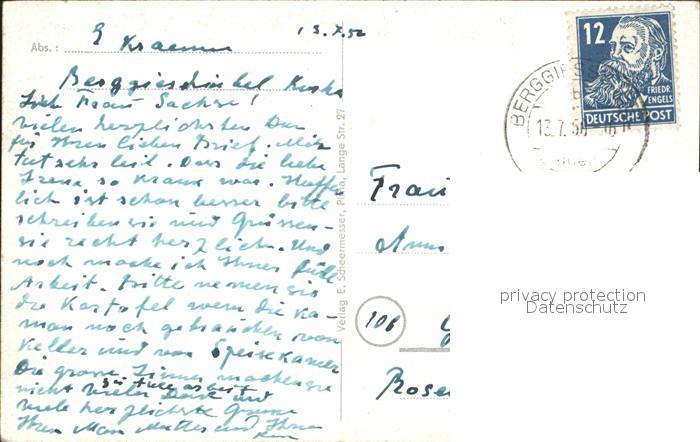 Abs.: E Kraemer
13.7.52
Berggieshübel
Lieb Frau Sachse!
vielen herzlichsten Dan
für Ihren lieben Brief. Mir
tut sehr leid. Das die liebe
Irene so krank war. Hoffe
lich ist schon besser bitte
schreiben sie und Grüssen
sie recht herzlich. Und
noch mache ich Ihnen
Arbeit. Bitte nemen sie
die Kartofel wenn die ka-
man noch gebrauchen von
Keller und von Speisekamer
Die grosse Zimer machen sie
nicht
vieler Dank und
viele herzlichste Grüsse
Verlag E. Scheermesser, Pirna, Lange Str. 27
12
FRIEDR.
ENGELS
DEUTSCHE POST
BERGGIES
13.7.5
Frau
Anna
10b
Rose
privacy protection
Datenschutz